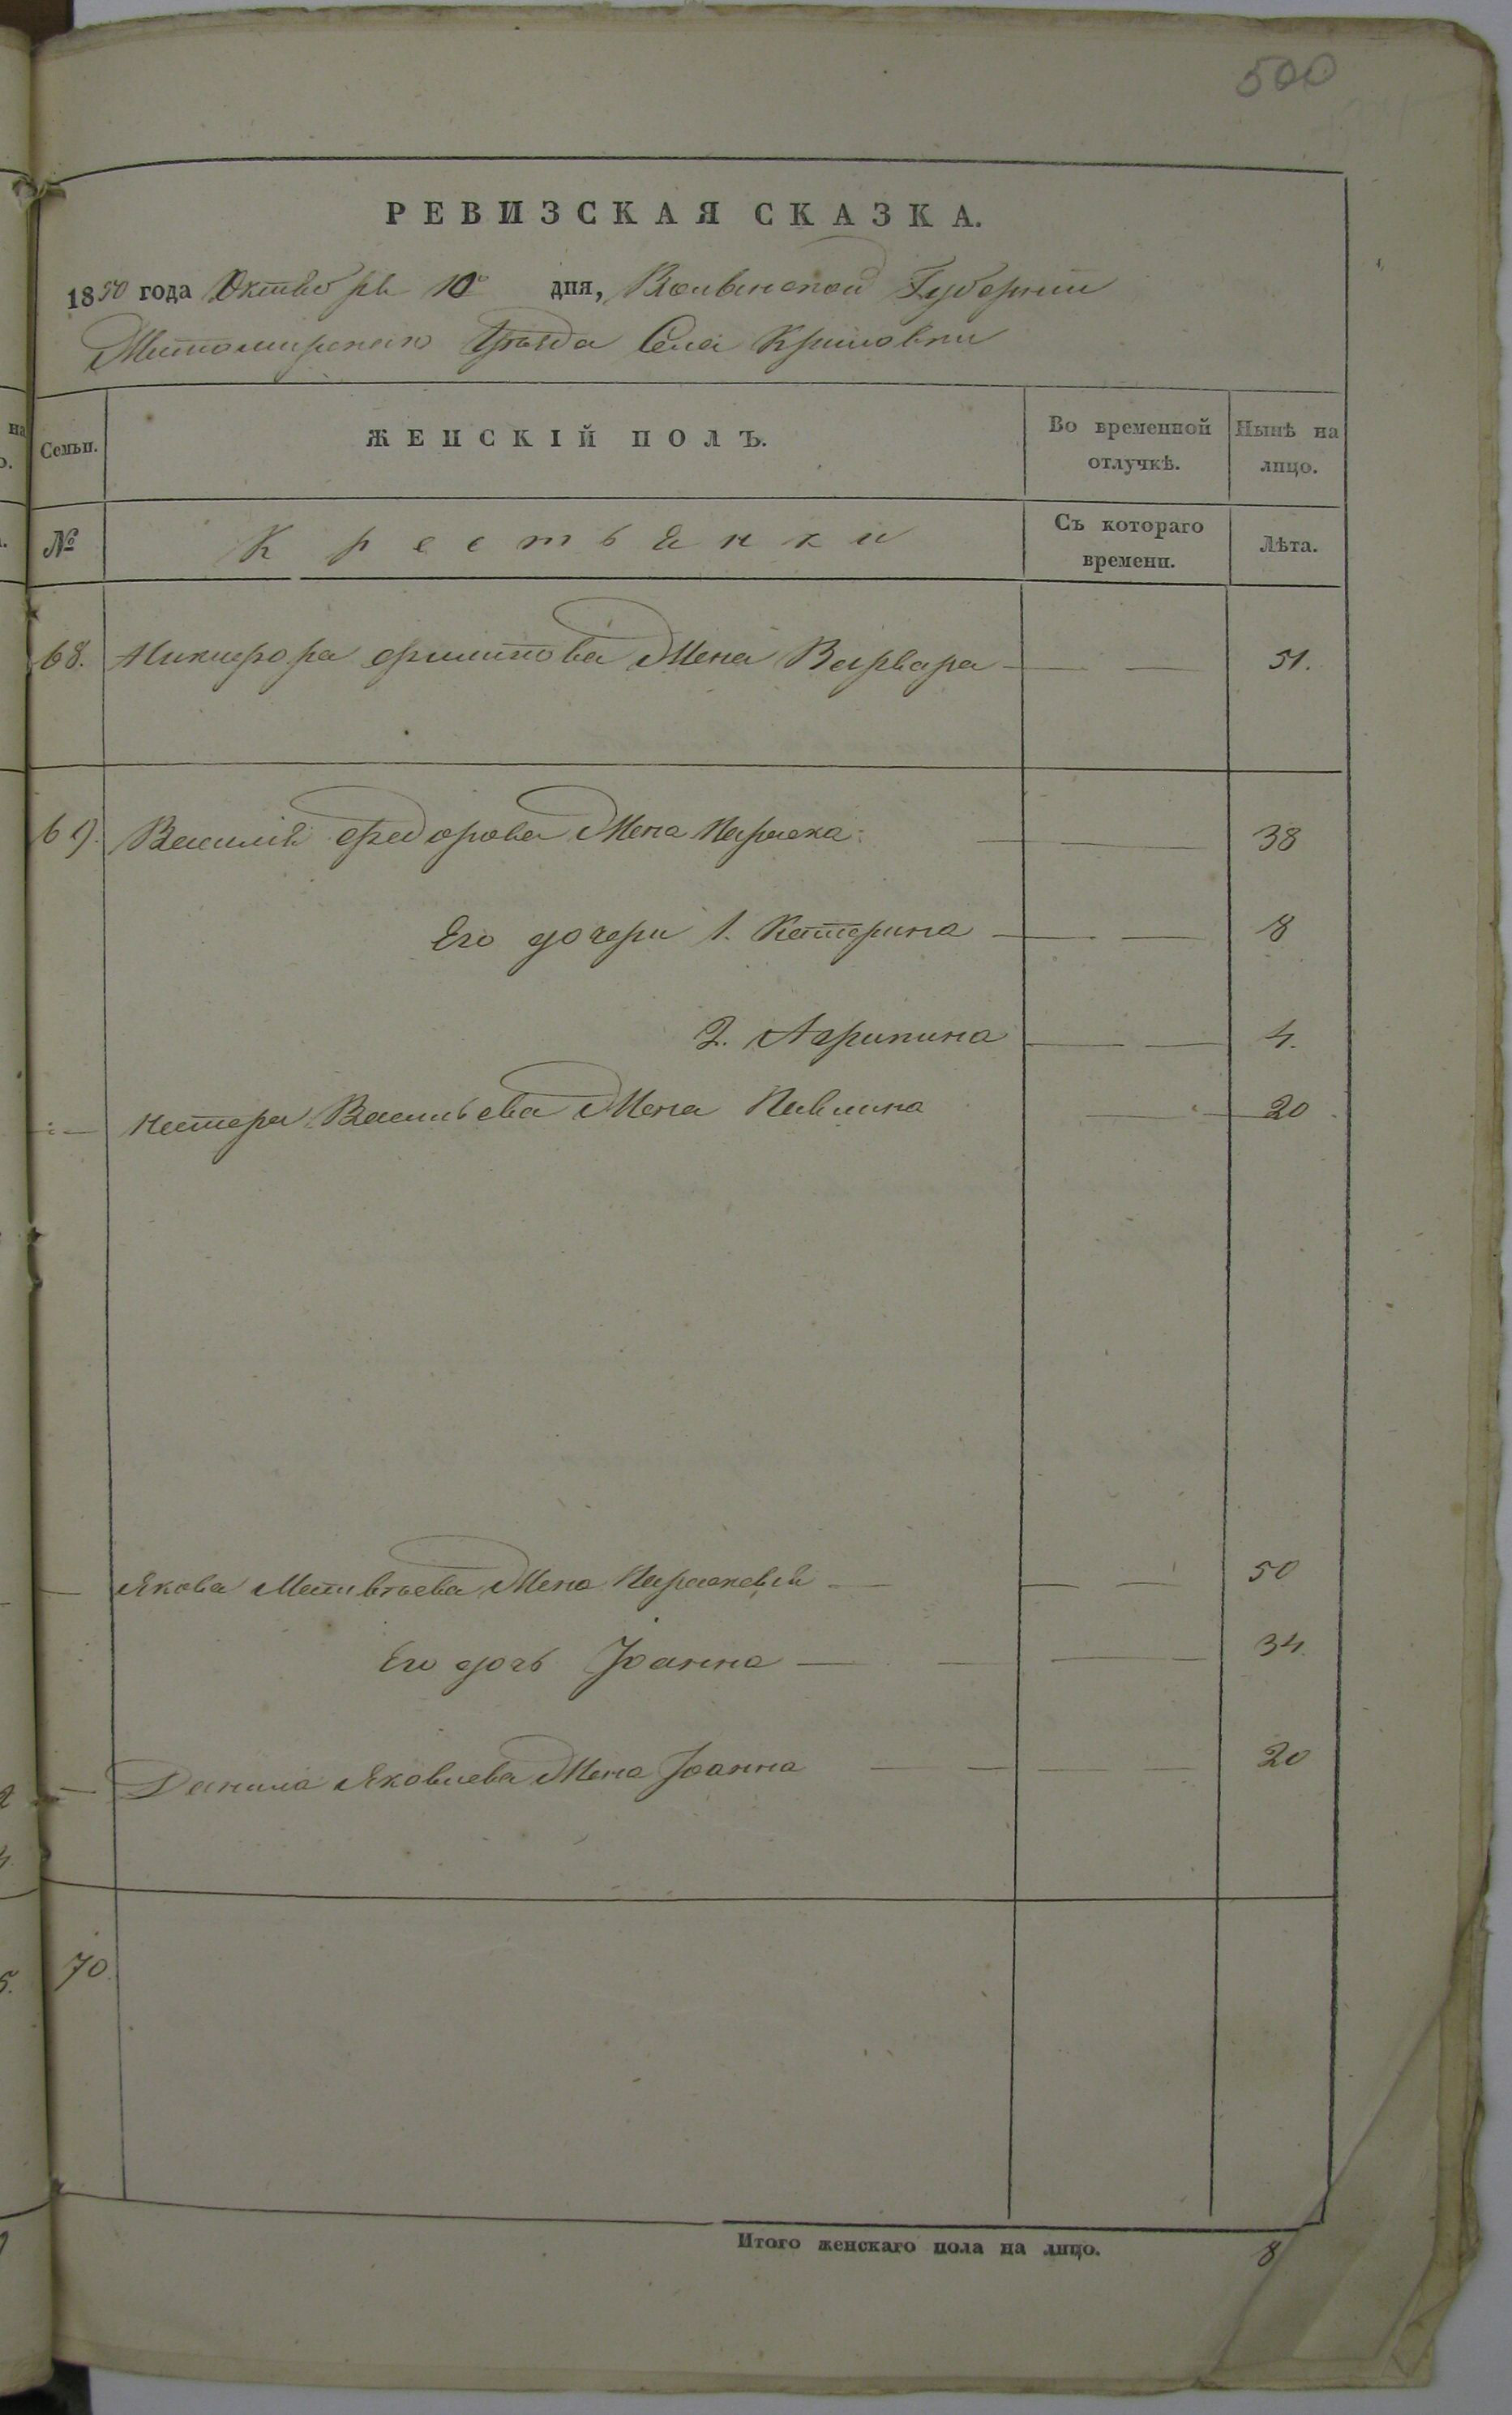 500
РЕВИЗСКАЯ СКАЗКА.
1850 года Октября 10 дня, Волынской Губернии
Житомирскаго Уѣзда Села Криловки
Семьи. ЖЕНСКІЙ ПОЛЪ. Во временной отлучкѣ. Нынѣ на лицо.
№ Крестьянки Съ котораго времени. Лѣта.
68. Никифора Филипова Жена Варвара — — 51.
69. Василія Федорова Жена Параска — — 38
Его дочери 1. Катерина — — 8
2. Агрипина — — 4.
Нестера Васильева Жена Павлина — — 20
Якова Матвѣева Жена Параскевія — — — 50
Его дочь Іоанна — — — — 34.
— Данила Яковлева Жена Іоанна — — — — 20
70.
Итого женскаго пола на лицо. 8